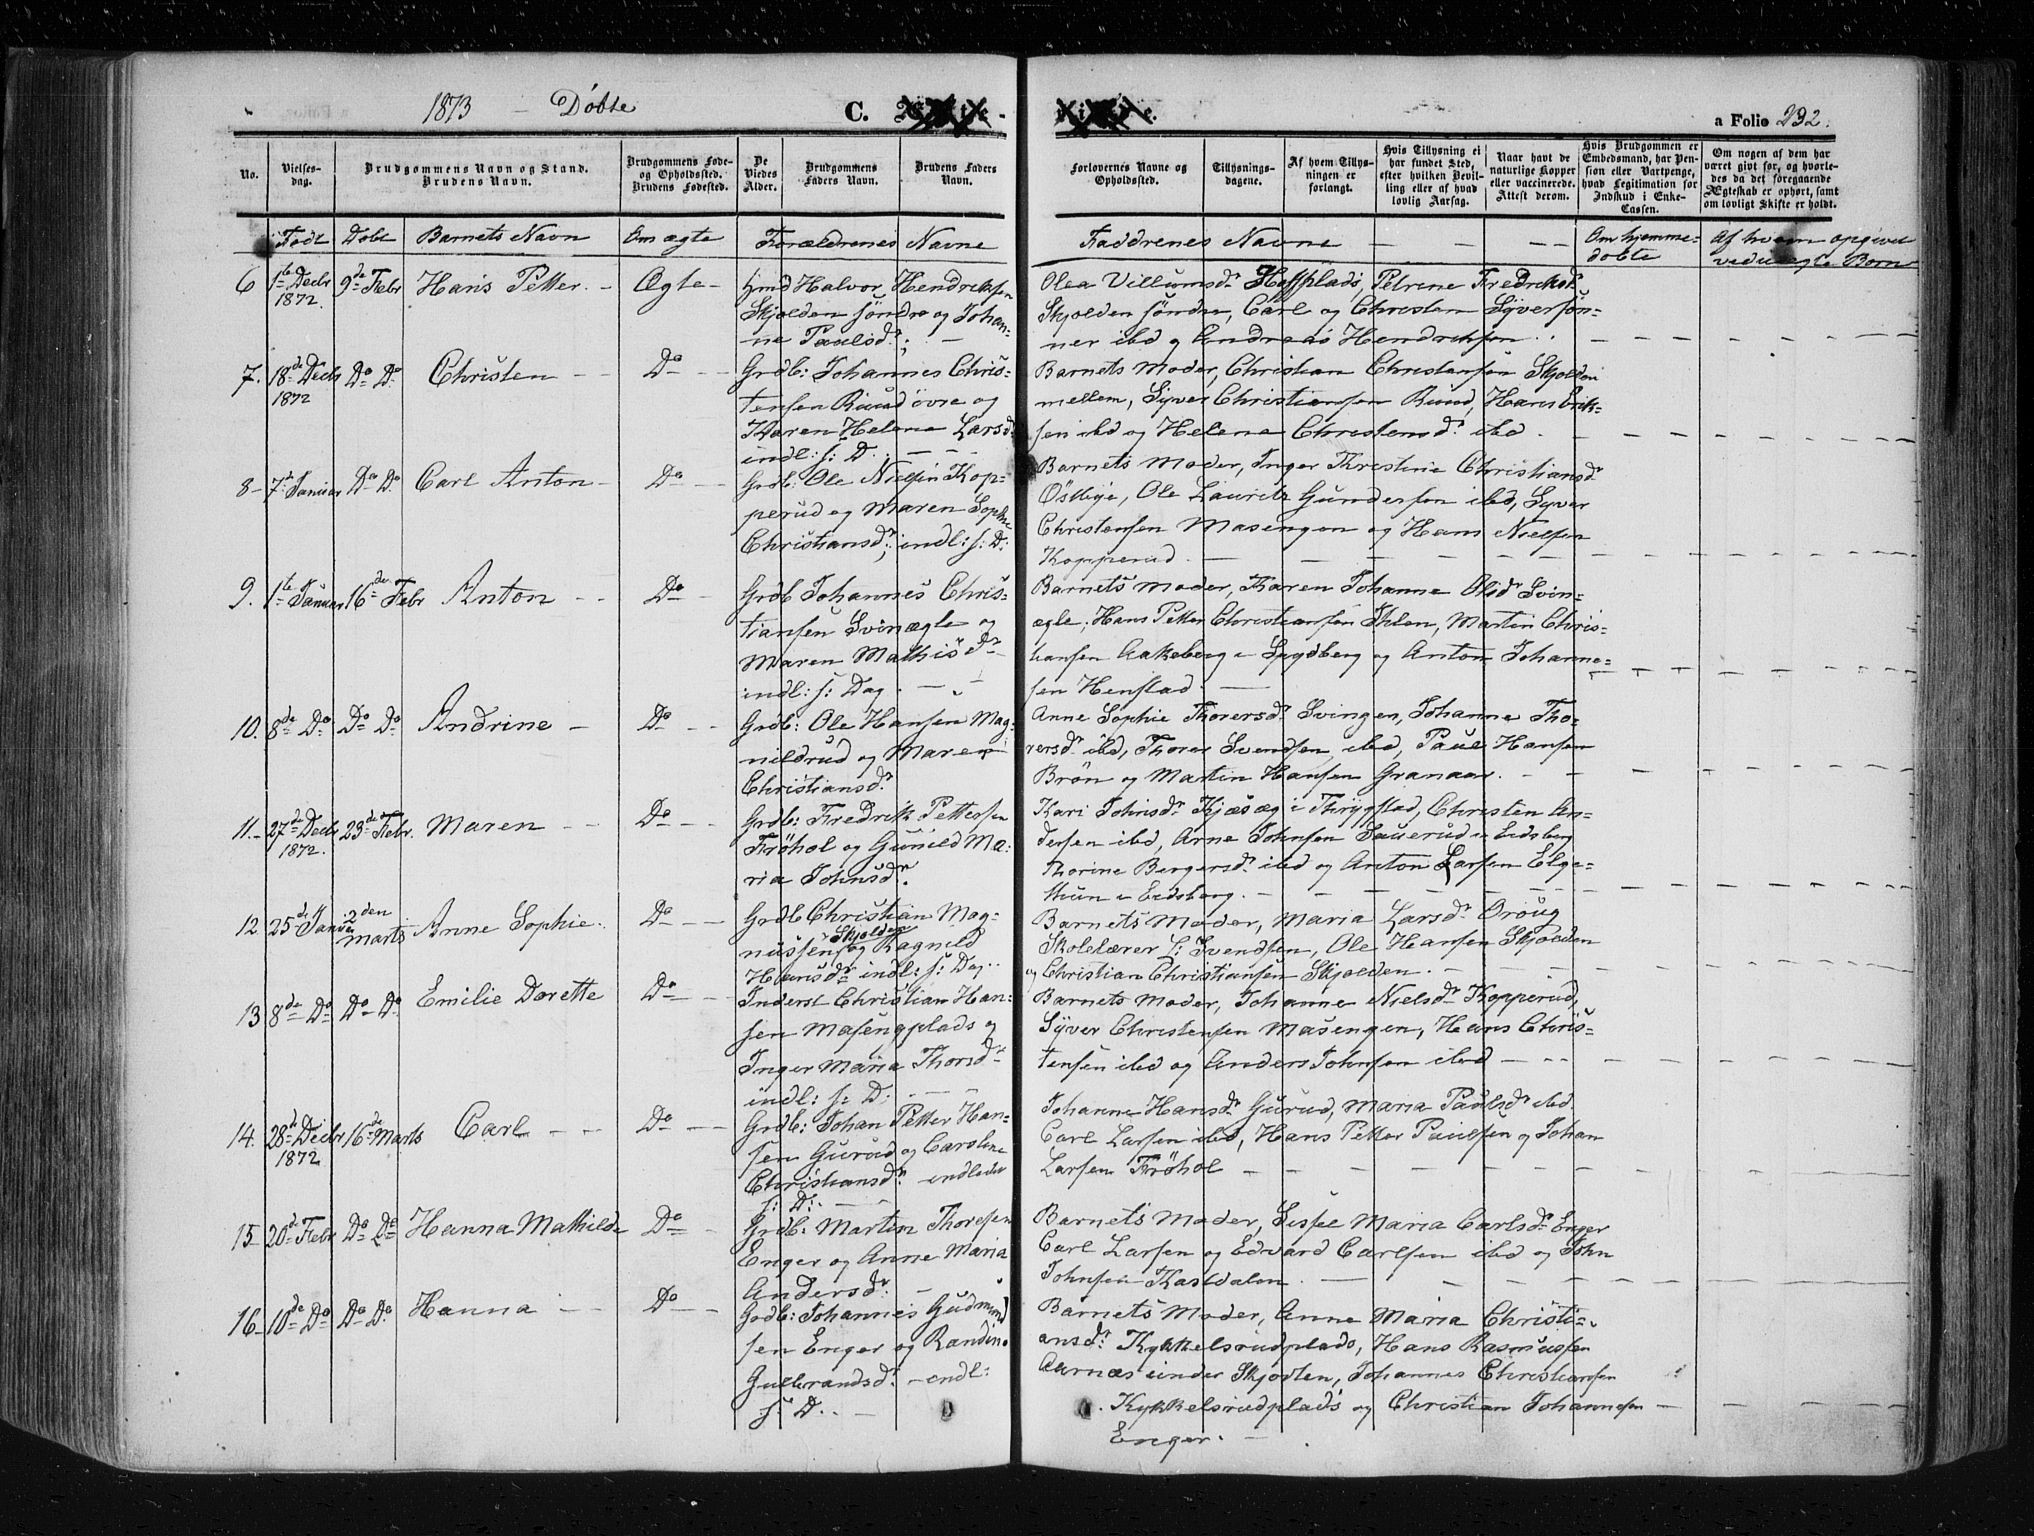 1873 - Döbte
C.
a Folio 232.
No.
Vielses-
dag.
Brudgommens Navn og Stand.
Brudens Navn.
Brudgommens Føde-
og Opholdssted.
Brudens Fødested.
De
Viedes
Alder.
Brudgommens
Faders Navn.
Brudens Faders
Navn.
Forlovernes Navne og
Opholdssted.
Tillysnings-
dagene.
Af hvem Tillys-
ningen er
forlangt.
Hvis Tillysning ei
har fundet Sted,
efter hvilken Bevil-
ling eller af hvad
lovlig Aarsag.
Naar havt de
naturlige Kopper
eller vaccinerede.
Attest derom.
Hvis Brudgommen er
Embedsmand, har Pen-
sion eller Vartpenge,
hvad Legitimation for
Indskud i Enke-
Cassen.
Om nogen af dem har
været gift før, og hvorle-
des da det foregaaende
Ægteskab er ophørt, samt
om lovligt Skifte er holdt.
Født Døbt Barnets Navn Om ægte Forældrenes Navne
Faddrenes Navne - - - - Om hjemme-
døbte
Af hvem opgivet
ved uægte Børn
6 1ste Decbr 9de Febr Hans Petter - Ægte - Gmd Halvor Hendriksen
1872. Skjolden söndre og Johan-
ne Paulsdr. -
Olea Villumsdr Hoffplads, Petrine Fredriksdr
Skjolden söndre, Carl og Christen Syversön-
ner ibd og Andreas Hendriksen
7. 18de Decbr Do Do Christen - Do - Grdb: Johannes Chris-
1872 tensen Ruud övre og
Karen Helene Larsdr
indl: s: D.
Barnets Moder, Christian Christensen Skjolden
mellem, Syver Christiansen Ruud, Hans Erik-
sen ibd og Helene Christensdr ibd.
8 - 7de Januar Do Do Carl Anton - Do - Grdb: Ole Nielsen Kop-
perud og Maren Sophie
Christiansdr, indl: s: D:
Barnets Moder, Inger Kirstine Christiansdr
Östbye, Ole Lauritz Gundersen ibd, Syver
Christensen Masengen og Hans Nielsen
Kopperud.
9. 1ste Januar 16de Febr Anton - Do - Grdb Johannes Chris-
tiansen Svinægle og
Maren Mathisdr
indl: s: Dag.
Barnets Moder, Karen Johanne Olsdr Svin-
ægle, Hans Petter Christiansen Ihlen, Martin Chris-
tiansen Aakeberg i Spydberg og Anton Johanne-
sen Henstad
10. 8de Do Do Do Andrine - Do - Grdb: Ole Hansen Mag-
nildrud og Maren
Christiansdr
Anne Sophie Thorersdr Svingen, Johanne Tho-
rersdr ibd, Thorer Svendsen ibd, Paul Hansen
Brön og Martin Hansen Granaas.
11. - 27de Decbr 23de Febr. Maren - Do - Grdb: Fredrik Pettersen
1872. Fröhol og Gunild Ma-
ria Johnsdr.
Kari Johnsdr Kjæsæg i Thrygstad, Christen An-
dersen ibd, Arne Johnsen Sauerud i Eidsberg
Thorine Bergersdr ibd og Anton Larsen Elge-
thun i Eidsberg.
12 25de Januar 2den Marts Anne Sophie. Do - Grdb Christian Mag-
nussen Skjolden og Ragnild
Hansdr indl: s: Dag.
Barnets Moder, Maria Larsdr Oroug
Skolelærer L: Svendsen, Ole Hansen Skjolden
og Christian Christiansen Skjolden.
13 8de Do Do Do Emilie Dorette Do - Inderst Christian Han-
sen Masengplads og
Inger Maria Thorsdr
indl: s: D:
Barnets Moder, Johanne Nielsdr Kopperud,
Syver Christensen Masengen, Hans Chris-
tensen ibd og Anders Johnsen ibd
14. 28de Decbr 16de Marts Carl - Do - Grdb: Johan Petter Han-
1872 sen Gurud og Caroline
Christiansdr indl:
s: D:
Johanne Hansdr Gurud, Maria Paulsdr ibd.
Carl Larsen ibd, Hans Petter Paulsen og Johan
Larsen Fröhol
15 20de Febr Do Do Hanna Mathilde Do - Grdb: Martin Thoresen
Enger og Anne Maria
Andersdr
Barnets Moder, Sissel Maria Carlsdr Enger
Carl Larsen og Edvard Carlsen ibd og John
Johnsen Kasldalen.
16 - 10de Do Do Do Hanna - Do - Grdb: Johannes Gudmund
sen Enger og Randine
Gulbrandsdr - indl:
s: D.
Barnets Moder, Anne Maria Christi-
ansdr Kykkelsrudplads, Hans Rasmussen
Aarnæs under Skjodten, Johannes Christiansen
Kykkelsrudplads og Christian Johannesen
Enger.